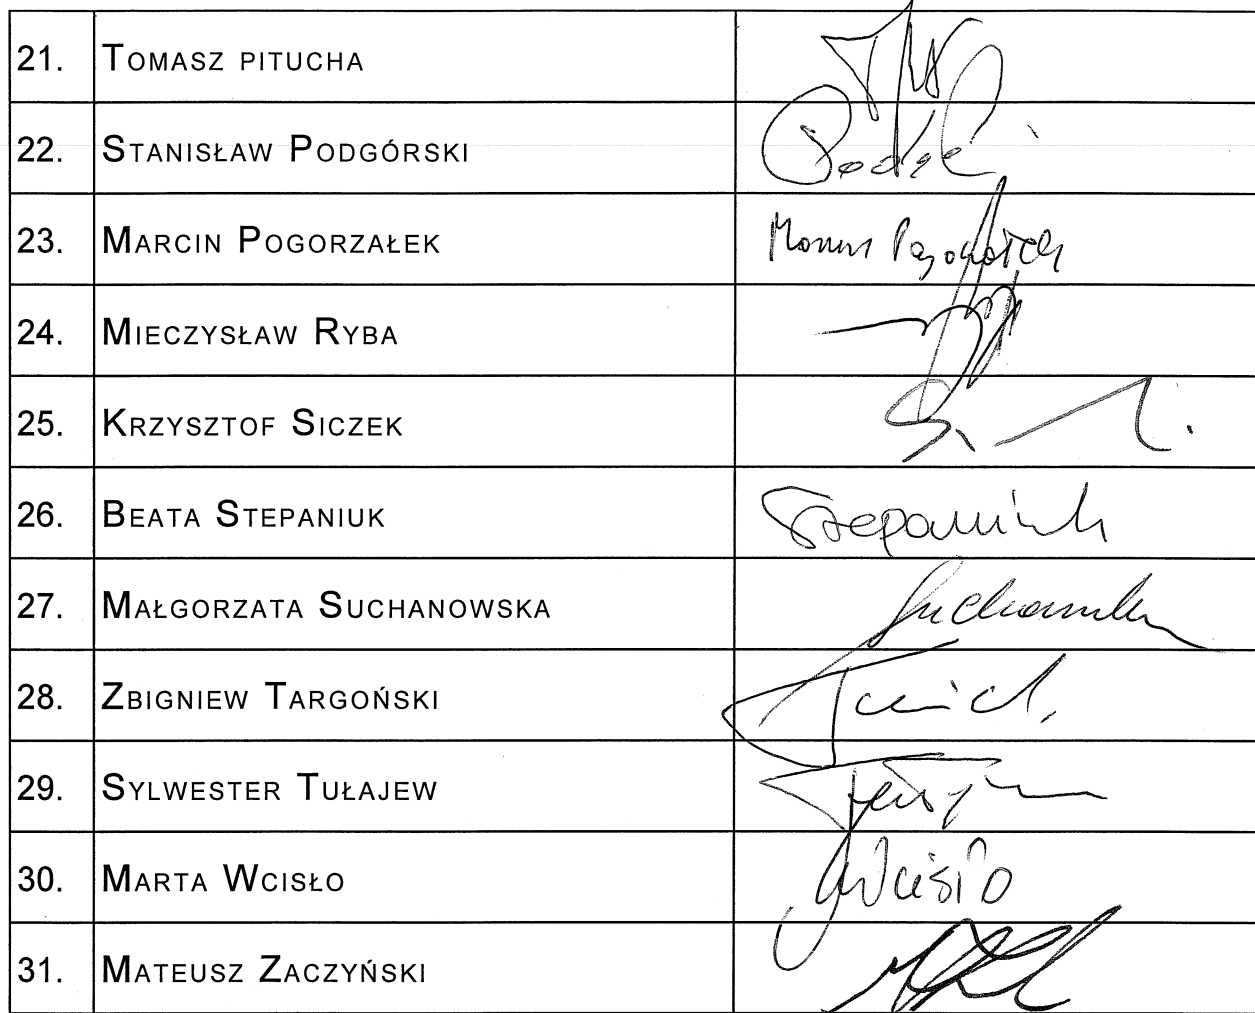 21. Tomasz pitucha
22. Stanisław Podgórski
23. Marcin Pogorzałek
24. Mieczysław Ryba
25. Krzysztof Siczek
26. Beata Stepaniuk Stepaniuk
27. Małgorzata Suchanowska
28. Zbigniew Targoński
29. Sylwester Tułajew
30. Marta Wcisło Wcisło
31. Mateusz Zaczyński